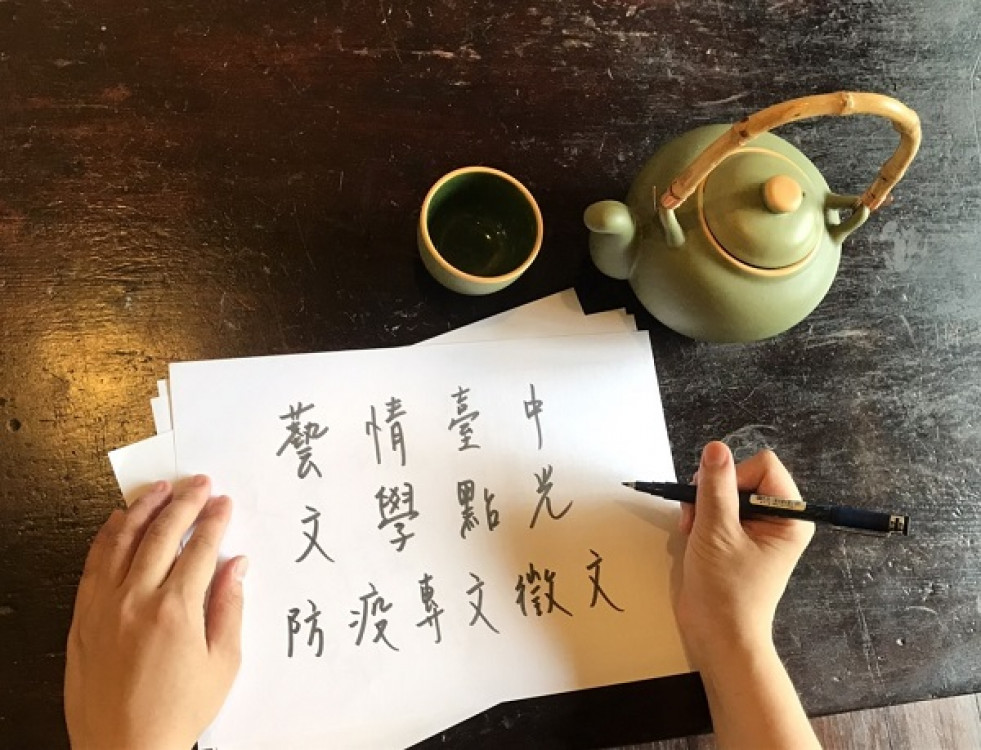 藝情臺中
文學點光
防疫專文徵文